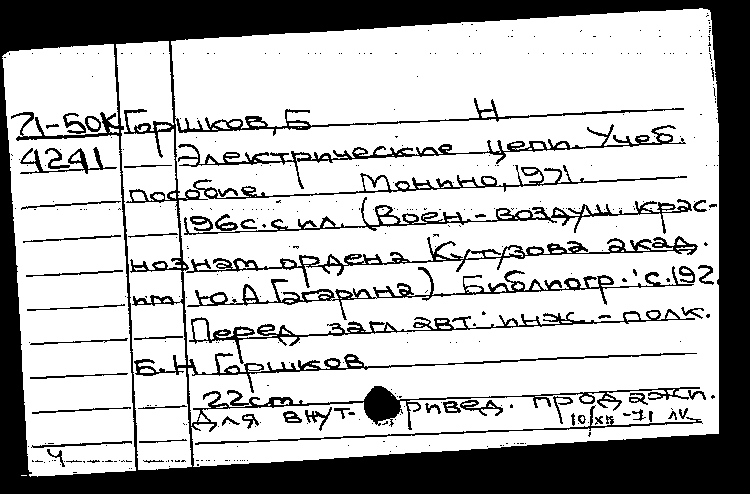 71-50К Горшков, Б Н
4241 Электрические цепи. Учеб.
пособие. Монино, 1971.
196с. с ил. (Воен.-воздуш. крас-
нознам. ордена Кутузова акад.
им. Ю.А Гагарина). Библиогр.: с.192.
Перед загл. авт.: инж.-полк.
Б.Н. Горшков
22см.
Для внут- продажи.
10/XII-71 ЛК
Ч